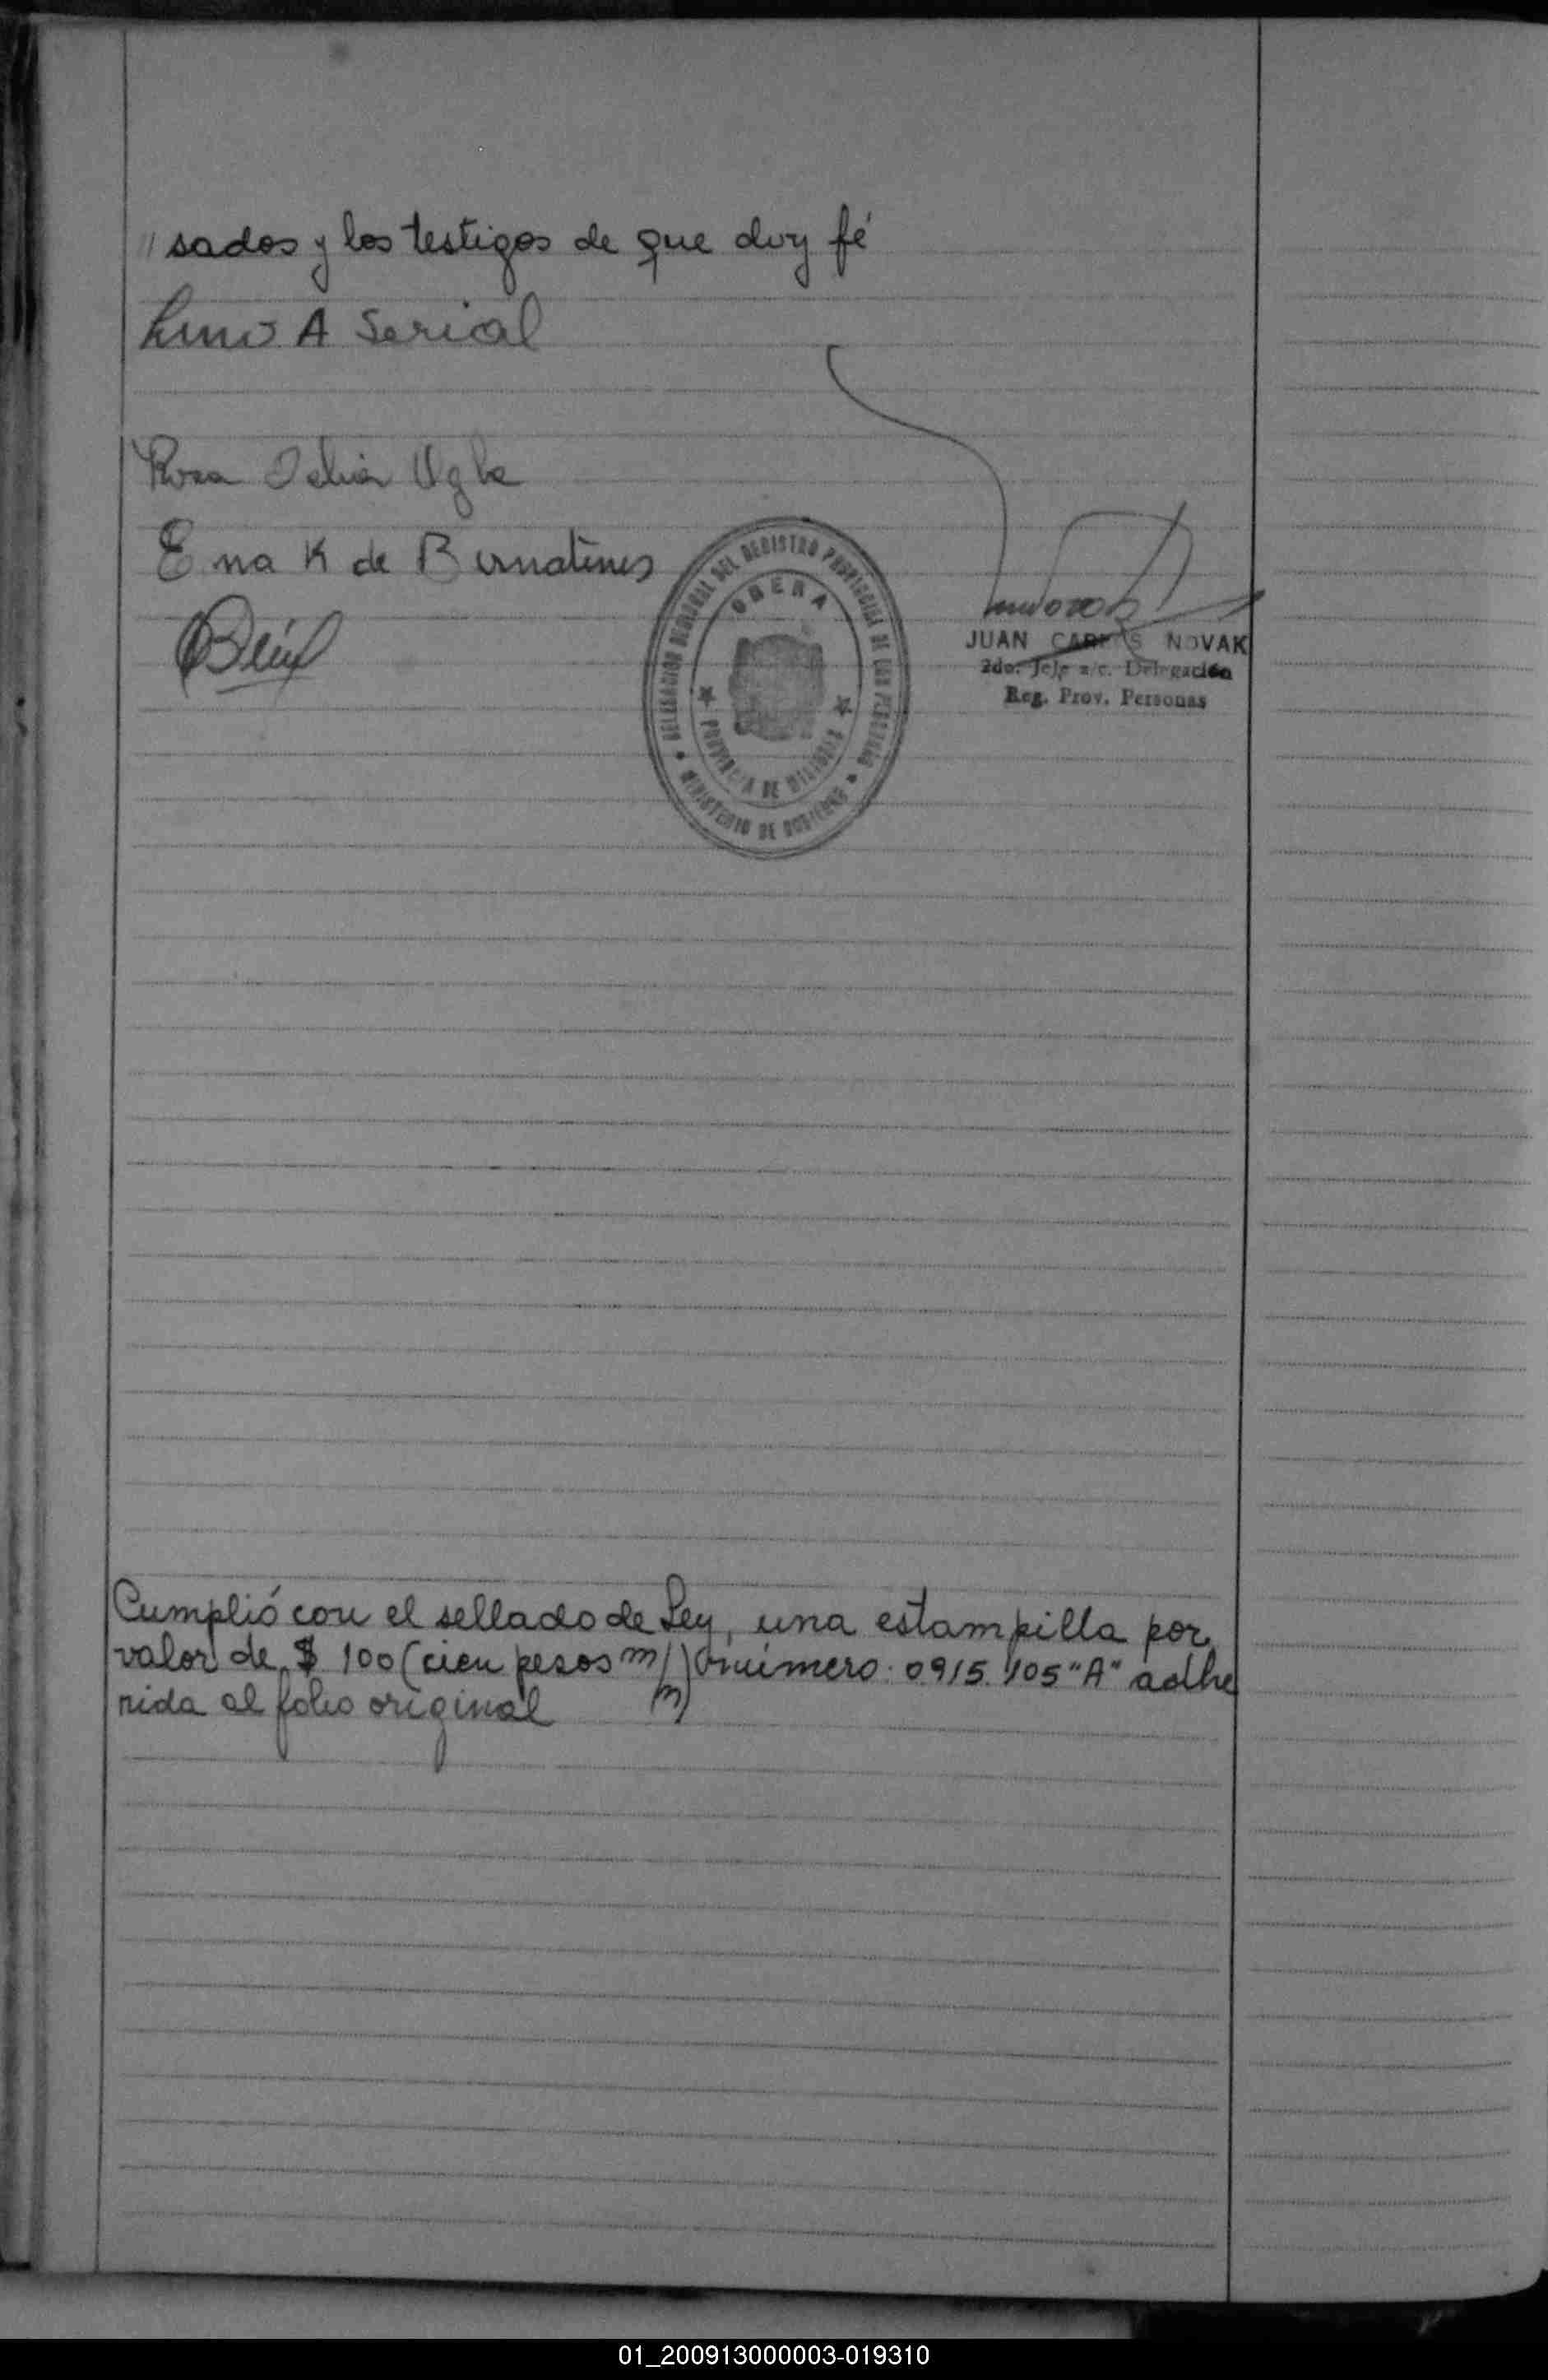 // sados y los testigos de que doy fé
Lino A Serial
Rosa Delia
Ena K de
DELEGACION REGIONAL DEL REGISTRO PROVINCIAL DE LAS PERSONAS
OBERA
PROVINCIA DE MISIONES
MINISTERIO DE GOBIERNO
JUAN CARLOS NOVAK
2do. Jefe a/c. Delegación
Reg. Prov. Personas
Cumplió con el sellado de Ley, una estampilla por
valor de $ 100 (cien pesos m/n) número: 0915.105 "A" adhe
rida al folio original
01_200913000003-019310